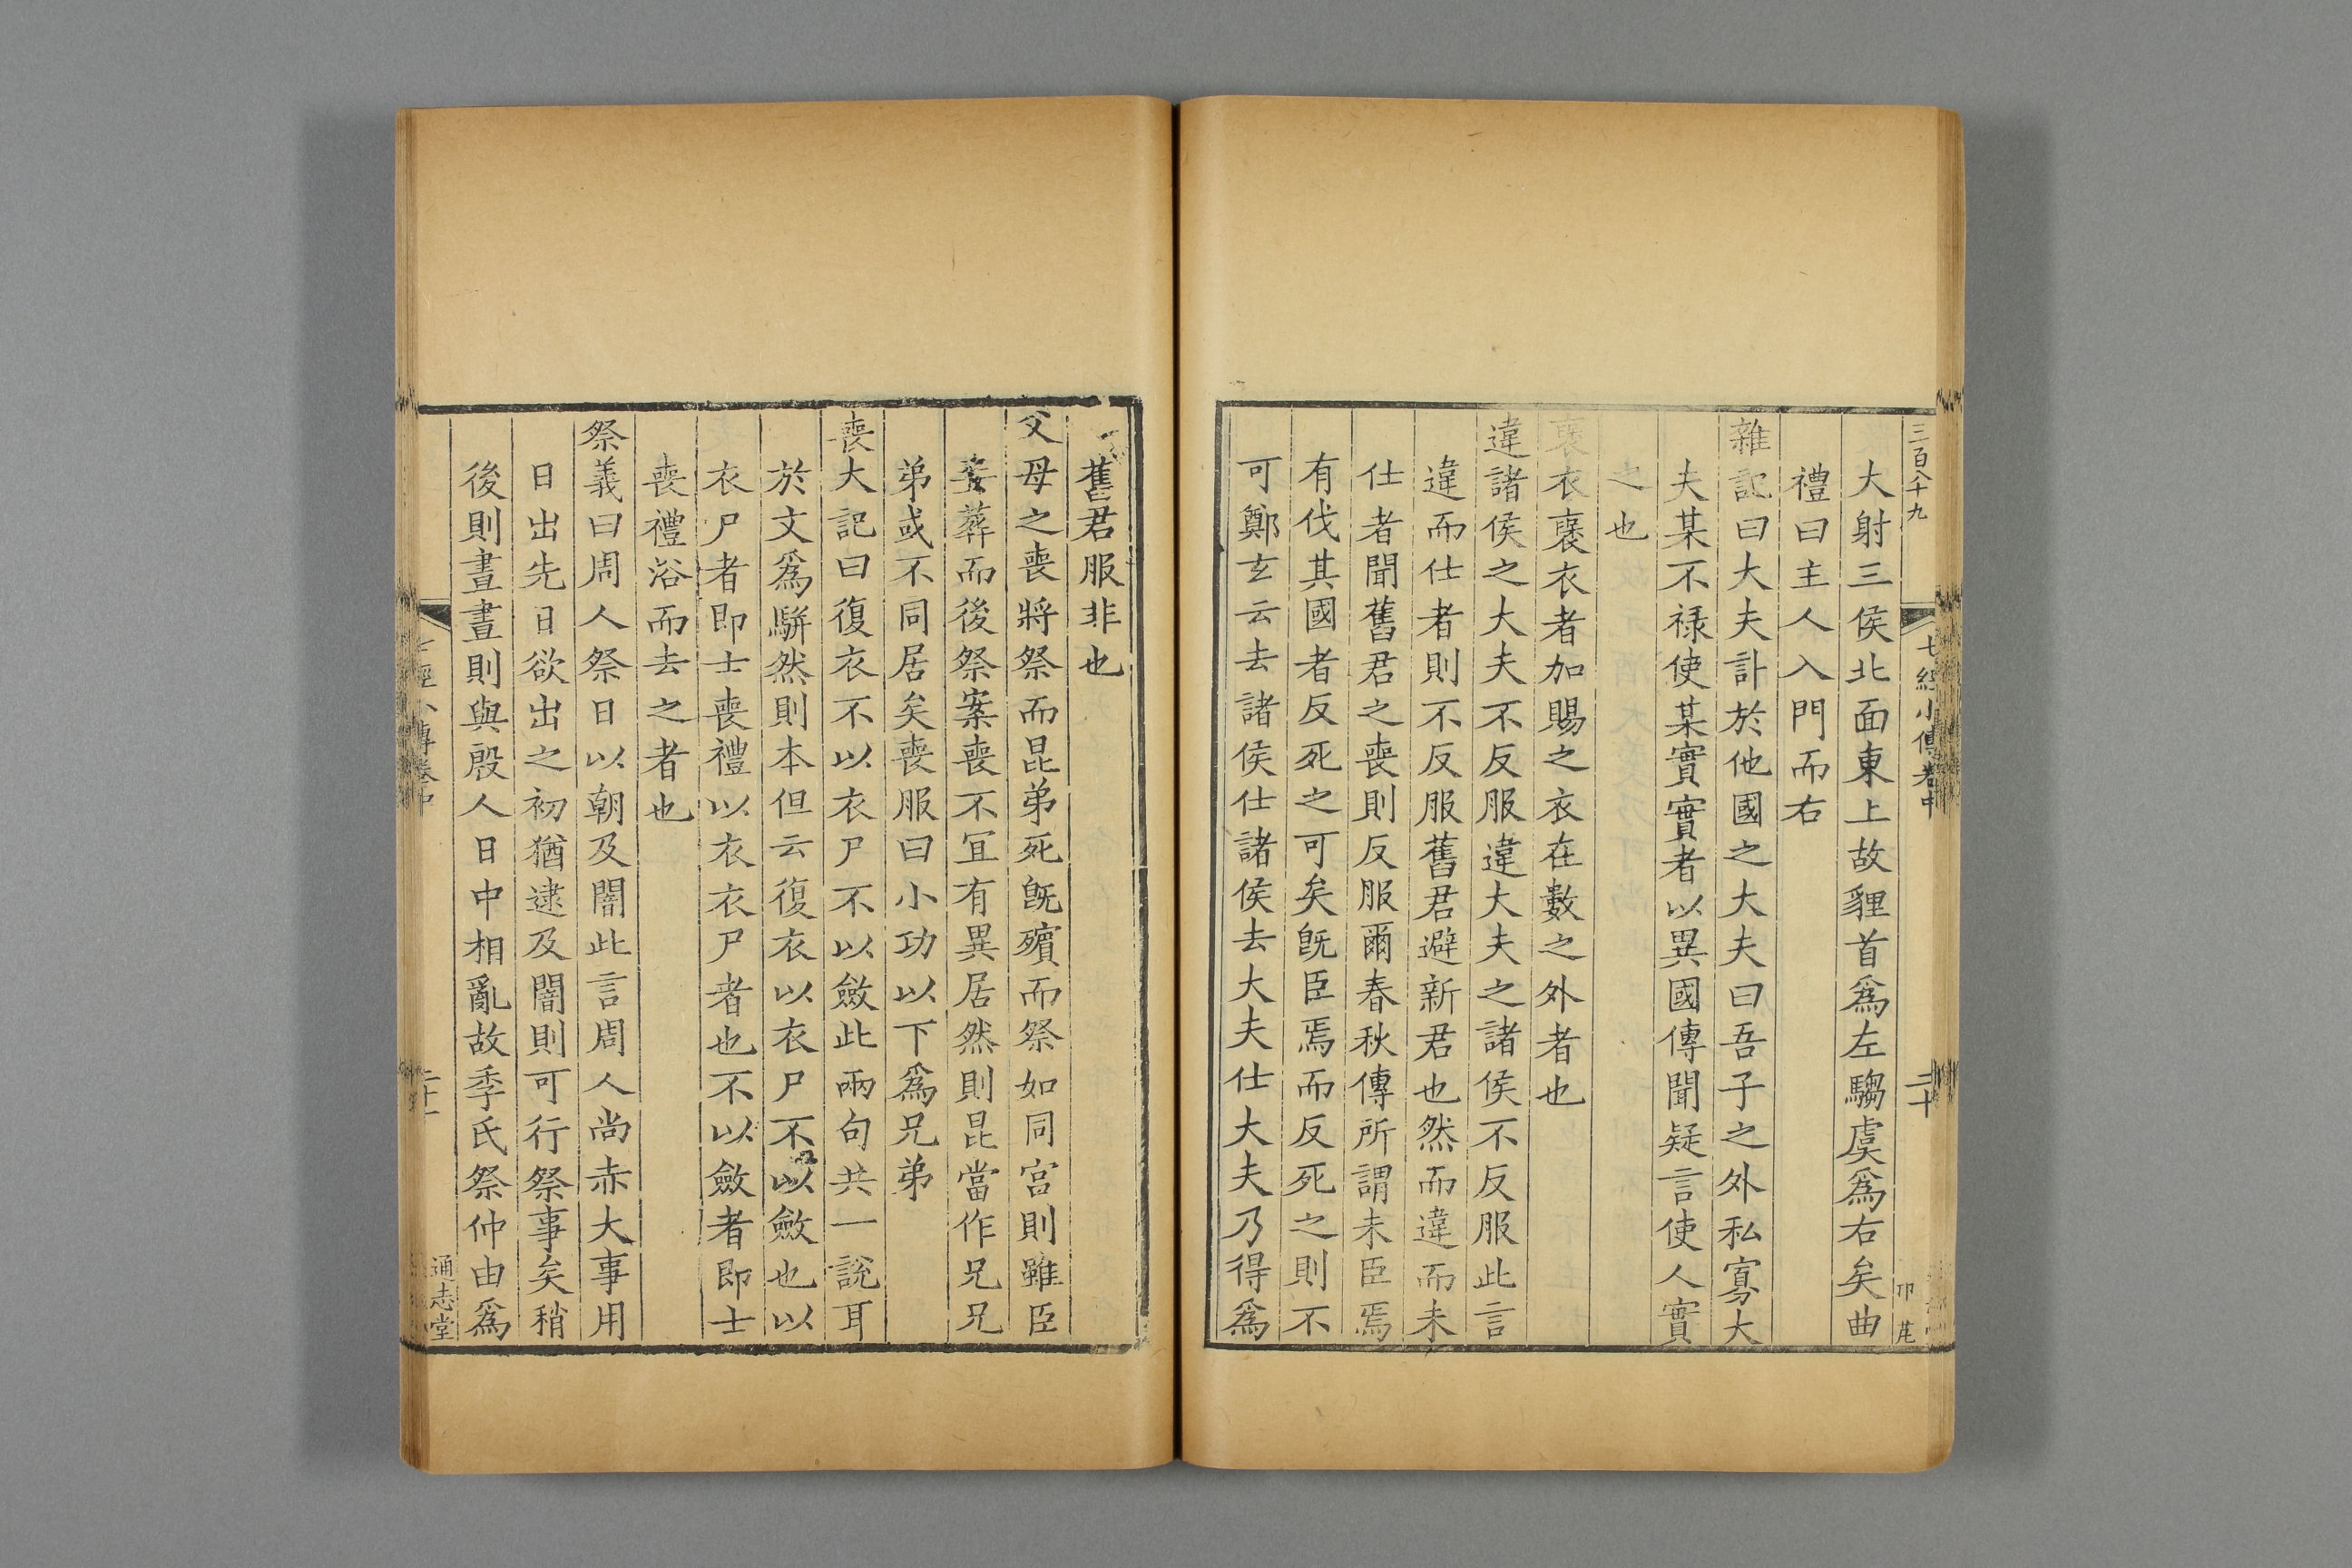 三百八十九
七經小傳卷中
二十
大射三侯北面東上故貍首爲左騶虞爲右矣曲
禮曰主人入門而右
雜記曰大夫訃於他國之大夫曰吾子之外私寡大
夫某不禄使某實實者以異國傳聞疑言使人實
之也
裦衣裦衣者加賜之衣在數之外者也
違諸侯之大夫不反服違大夫之諸侯不反服此言
違而仕者則不反服舊君避新君也然而違而未
仕者聞舊君之喪則反服爾春秋傳所謂未臣焉
有伐其國者反死之可矣旣臣焉而反死之則不
可鄭玄云去諸侯仕諸侯去大夫仕大夫乃得爲
舊君服非也
父母之喪將祭而昆弟死旣殯而祭如同宫則雖臣
妾葬而後祭案喪不冝有異居然則昆當作兄兄
弟或不同居矣喪服曰小功以下爲兄弟
喪大記曰復衣不以衣尸不以斂此兩句共一說耳
於文爲駢然則本但云復衣以衣尸不以斂也以
衣尸者即士喪禮以衣衣尸者也不以斂者即士
喪禮浴而去之者也
祭義曰周人祭日以朝及闇此言周人尚赤大事用
日出先日欲出之初猶逮及闇則可行祭事矣稍
後則晝晝則與殷人日中相亂故季氏祭仲由爲
七經小傳卷中
二十一
通志堂